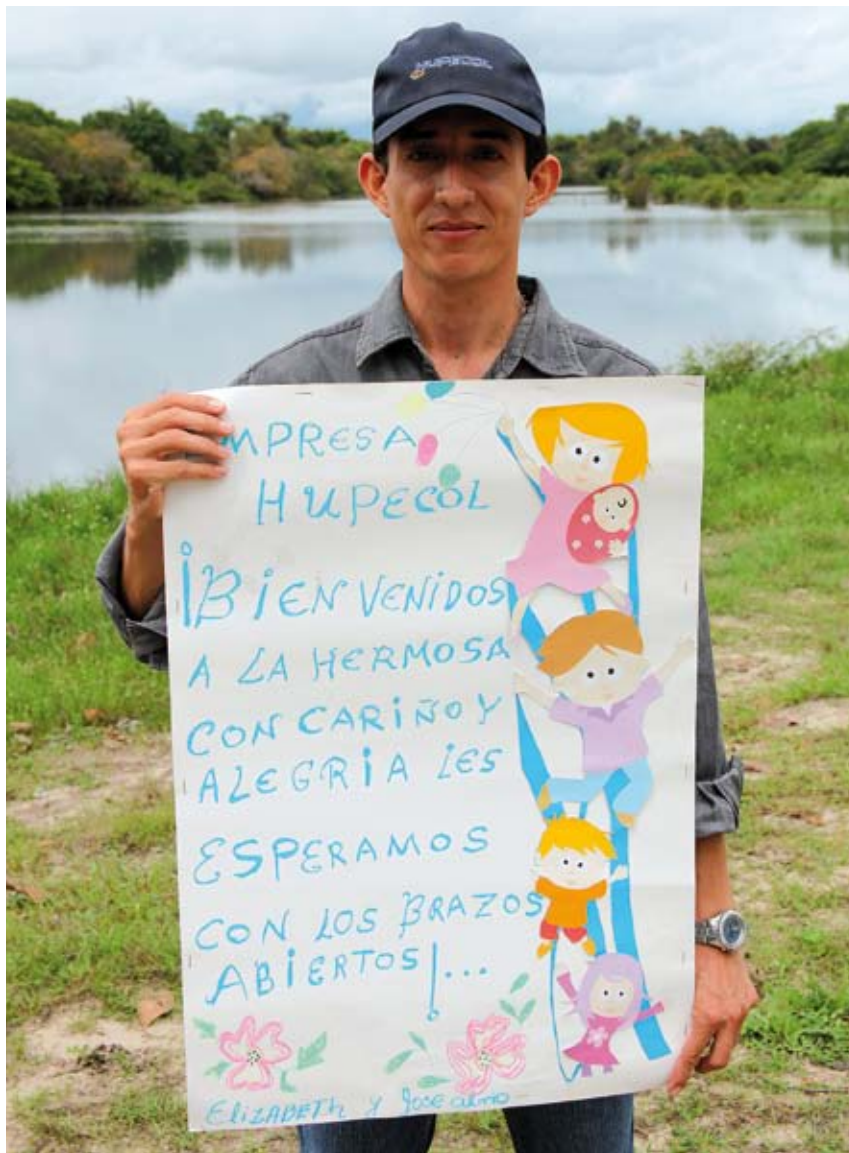 HUPECOL
EMPRESA
HUPECOL
¡BIENVENIDOS
A LA HERMOSA
CON CARIÑO Y
ALEGRIA LES
ESPERAMOS
CON LOS BRAZOS
ABIERTOS!...
ELIZABETH y JOSE